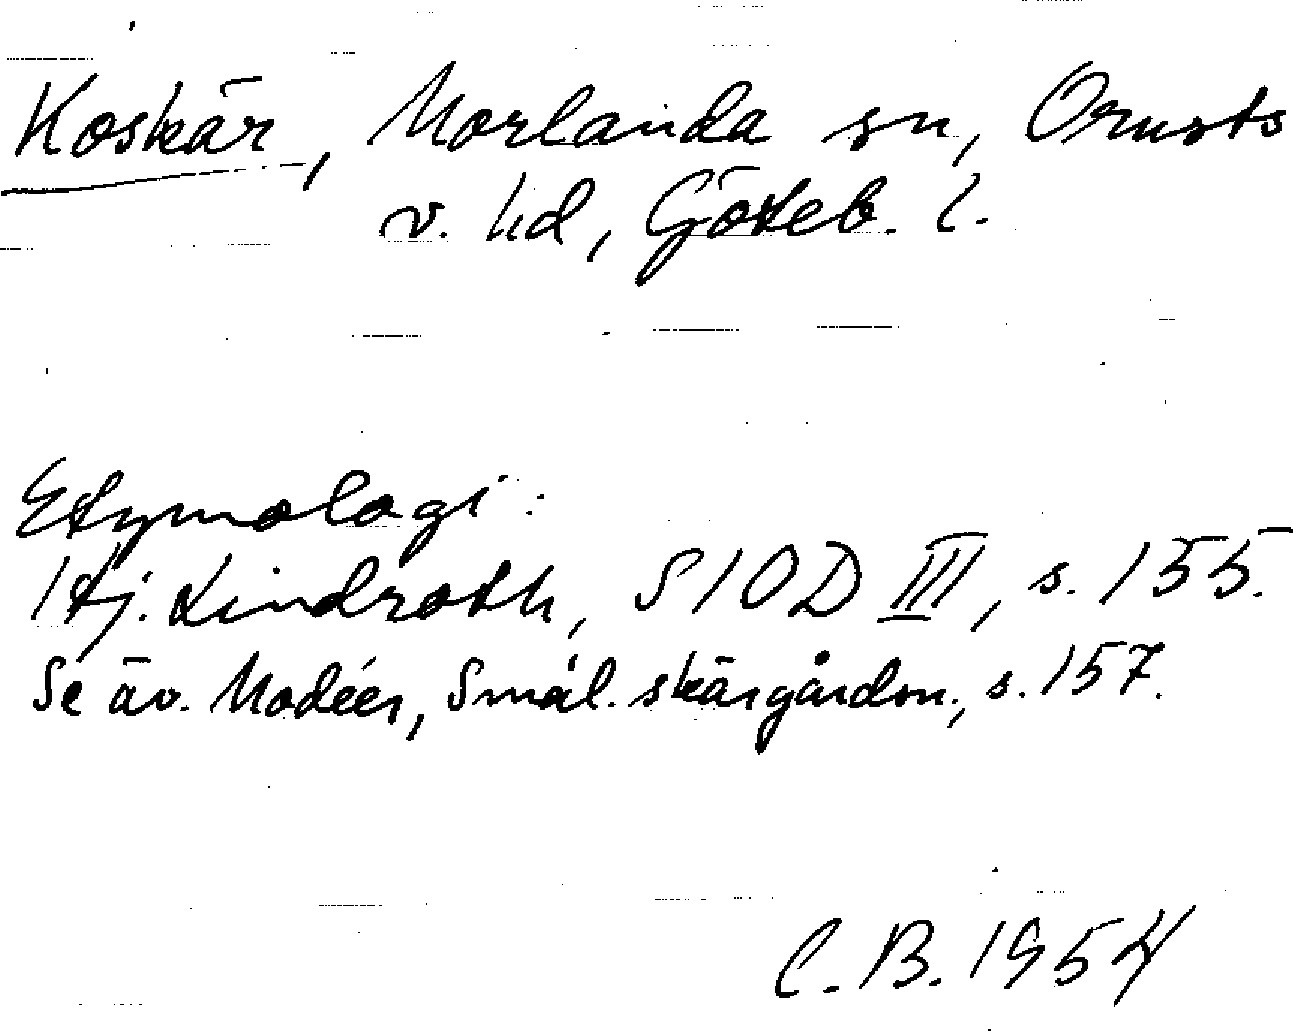 Koskär, Morlanda sn, Orusts
v. hd, Göteb. l.
Etymologi:
Hj. Lindroth, SIOD III, s. 155.
Se äv. Modéer, Smål. skärgårdsn., s. 157.
C. B. 1954